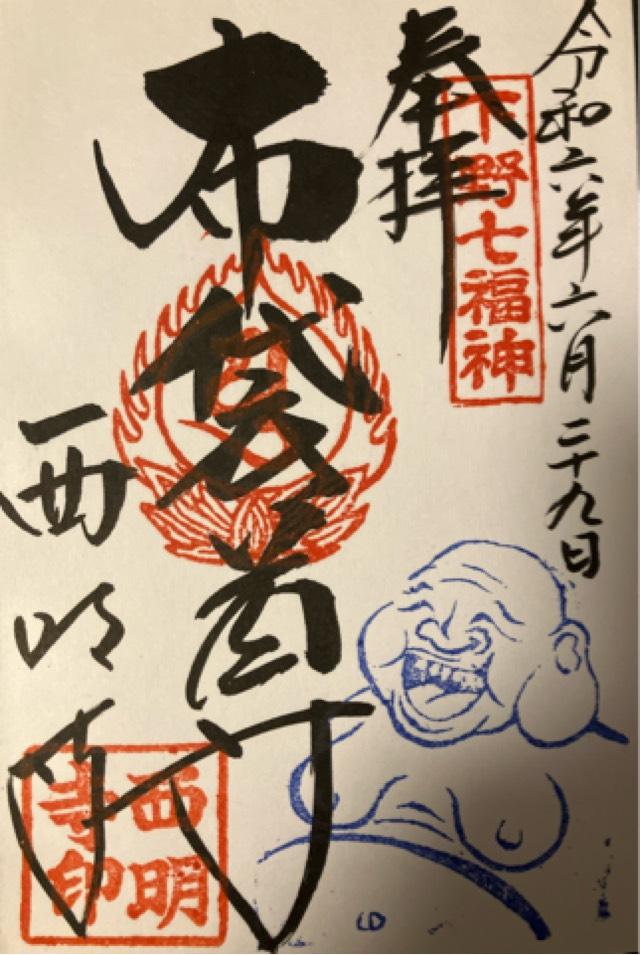 令和六年六月二十九日
奉拝
下野七福神
布袋尊
西明寺
西明
寺印